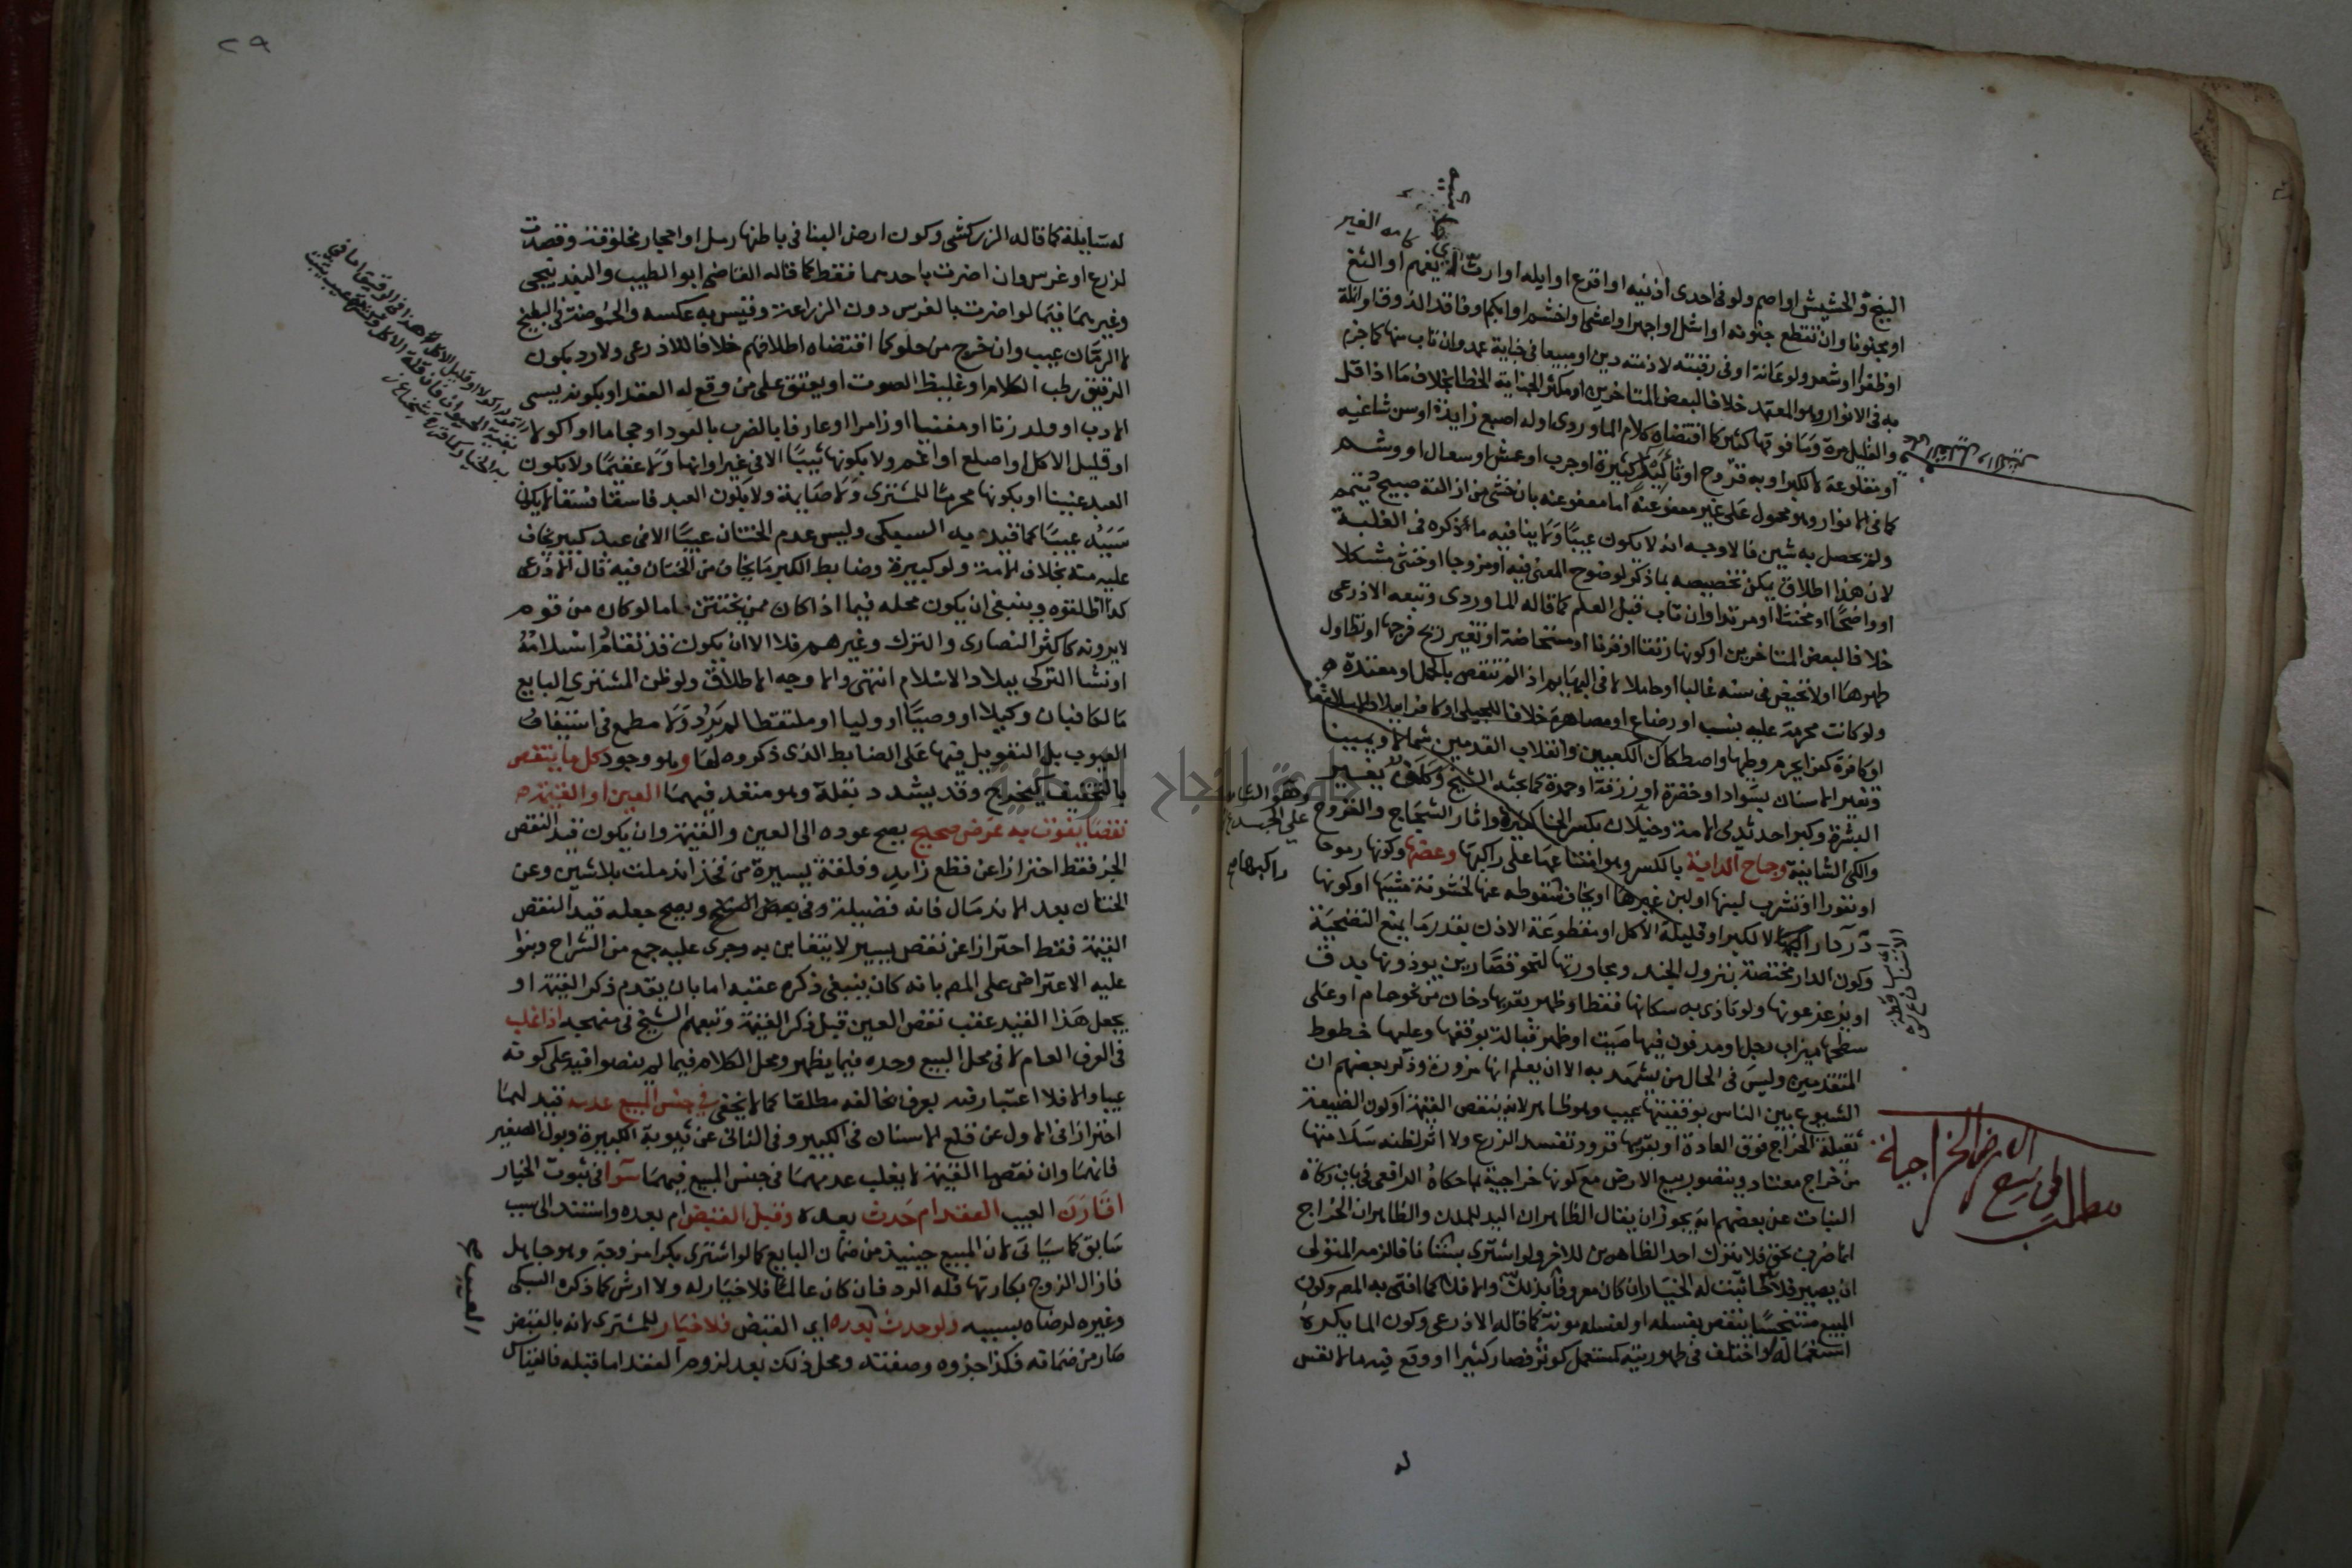 البنج والحشيش او اصم ولو في احدى اذنيه او اقرع او ابله او ارت لا يفهم او الثغ
او مجنونا وان تقطع جنونه او اشل او اجهر او اعشى او اخشم او ابكم او فاقد الذوق او انملة
او ظفر او شعر ولو عانة او في رقبته لا ذمته دين او مبيعا في جناية عمد وان تاب منها كما جزم
به في الانوار وهو المعتمد خلافا لبعض المتاخرين او مكثر الجناية الخطا بخلاف ما اذا قل
والقليل مرة وما فوقها كثير كما اقتضاه كلام الماوردي او له اصبع زايدة او سن شاغيه
او مقلوعة لا لكبر او به قروح او ثآليل كثيرة او جرب او عمش او سعال او وشم
كما في الانوار وهو محمول على غير معفو عنه اما معفو عنه بان خشي من ازالته مبيح تيمم
ولم يحصل به شين فالاوجه انه لا يكون عيبا ولا ينافيه ما نذكره في الغلبة
لان هذا اطلاق يمكن تخصيصه بما ذكر لوضوح المعنى فيه او مزوجا او خنثى مشكلا
او واضحا او مخنثا او مرتدا وان تاب قبل العلم كما قاله الماوردي وتبعه الاذرعي
خلافا لبعض المتاخرين او كونها رتقا او قرنا او مستحاضة او تغير ريح فرجها او تطاول
طهرها او لا تحيض في سنه غالبا او حاملا لا في البهايم اذا لم تنقص بالحمل او معتدة
ولو كانت محرمة عليه بنسب او رضاع او مصاهرة خلافا للجيلي او كافر ببلاد الاسلام
او كافرة كفر يحرم وطيها واصطكاك الكعبين وانقلاب القدمين شمالا ويمينا
وتغير الاسنان بسواد او خضرة او زرقة او حمرة كما بحثه الشيخ وكلف يغير
البشرة وكبر احد ثديي الامة وخيلان بكسر الخا كثيرة واثار الشجاج والقروح
والكي الشاينة وجماح الدابة بالكسر وهو امتناعها على راكبها وعضها وكونها رموحا
او نفورا او تشرب لبنها او لبن غيرها او يخاف سقوطه عنها لخشونة مشيها او كونها
درداء لا لكبر او قليلة الاكل او مقطوعة الاذن بقدر ما يمنع التضحية
وكون الدار مختصة بنزول الجند ومجاورتها لنحو قصارين يوذونها بدق
او يزعزعونها ولو تاذى به سكانها فقط او ظهر بقربها دخان من نحو حمام او على
سطحها ميزاب رجل او مدفون فيها ميت او ظهر قبالة بوقفها وعليها خطوط
المتقدمين وليس في الحال من يشهد به الا ان يعلم انها مزورة وذكر بعضهم ان
الشيوع بين الناس بوقفيتها عيب وهو ظاهر لانه ينقص القيمة او كون الضيعة
ثقيلة الخراج فوق العادة او بقربها قرود تفسد الزرع ولا اثر لظنه سلامتها
من خراج معتاد ويتصور بيع الارض مع كونها خراجية بما حكاه الرافعي في باب زكاة
النبات عن بعضهم انه يجوز ان يقال الظاهر ان اليد للملك والظاهر ان الخراج
انما ضرب بحق فلا يترك احد الظاهرين للاخر ولو اشترى بستانا فالزمه المتولي
ان يصير فلاحا ثبت له الخيار ان كان معروفا بذلك والا فلا كما افتى به المص وكون
المبيع متنجسا ينقص بغسله او لغسله مونة كما قاله الاذرعي وكون الما يكره
استعماله او اختلف في طهوريته كمستعمل كوثر فصار كثيرا او وقع فيه ما لا نفس
له
مطلب
في بيع
الارض الخراجية
٢٩
له سايلة كما قاله الزركشي وكون ارض البنا في باطنها رمل او احجار مخلوقة وقصدت
لزرع او غرس وان اضرت باحدهما فقط كما قاله القاضي ابو الطيب والبندنيجي
وغيرهما فيما لو اضرت بالغرس دون الزراعة وقيس به عكسه والحموضة في البطيخ
لا الرمان عيب وان خرج من حلو كما اقتضاه اطلاقهم خلافا للاذرعي ولا رد بكون
الرقيق رطب الكلام او غليظ الصوت او يعتق على من وقع له العقد او بكونه يسي
الادب او ولد زنا او مغنيا او زامرا او عارفا بالضرب بالعود او حجاما او اكولا
او قليل الاكل او اصلع او اغم ولا بكونها ثيبا الا في غير اوانها ولا عقيما ولا بكون
العبد عنينا او بكونها محرمة للمشتري ولا صايمة ولا بكون العبد فاسقا فسقا لا يكون
سببه عيبا كما قيد به السبكي وليس عدم الختان عيبا الا في عبد كبير يخاف
عليه منه بخلاف الامة ولو كبيرة وضابط الكبر ما يخاف من الختان فيه قال الاذرعي
كذا اطلقوه وينبغي ان يكون محله فيما اذا كان ممن يختتن اما لو كان من قوم
لا يرونه كاكثر النصارى والترك وغيرهم فلا الا ان يكون قد تقادم اسلامه
او نشا التركي ببلاد الاسلام انتهى والاوجه الاطلاق ولو ظن المشتري البايع
مالكا فبان وكيلا او وصيا او وليا او ملتقطا لم يرد ولا مطمع في استيفاء
العيوب بل التعويل فيها على الضابط الذي ذكروه لها وهو وجود كل ما ينقص
بالتخفيف كيخرج وقد يشدد بقلة وهو متعد فيهما العين او القيمة
نقصا يفوت به غرض صحيح يصح عوده الى العين والقيمة وان يكون قيد النقص
الجز فقط احترازا عن قطع زايد وفلقة يسيرة من فخذ اندملت بلا شين وعن
الختان بعد الاندمال فانه فضيلة وفي بعض النسخ ويصح جعله قيد النقص
القيمة فقط احترازا عن نقص يسير لا يتغابن به وجرى عليه جمع من الشراح وبنوا
عليه الاعتراض على المص بانه كان ينبغي ذكره عقبه اما بان يقدم ذكر القيمة او
يجعل هذا القيد عقب نقص العين قبل ذكر القيمة وتبعهم الشيخ في منهجه اذا غلب
في العرف العام لا في محل البيع وحده فيما يظهر ومحل الكلام فيما لم ينصوا فيه على كونه
عيبا والا فلا اعتبار فيه بعرف يخالفه مطلقا كما لا يخفى في جنس المبيع عدمه قيد لهما
احترازا في الاول عن قلع الاسنان في الكبير وفي الثاني عن ثيوبة الكبيرة وبول الصغير
فانهما وان نقص بها القيمة لا يغلب عدمهما في جنس المبيع فيهما سوا في ثبوت الخيار
اقارن العيب العقد ام حدث بعده وقبل القبض ام بعده واستند الى سبب
سابق كما سياتي لان المبيع حينيذ من ضمان البايع كما لو اشترى بكرا مزوجة وهو جاهل
فازال الزوج بكارتها فله الرد فان كان عالما فلا خيار له ولا ارش كما ذكره السبكي
وغيره لرضاه بسببه ولو حدث بعده اي القبض فلا خيار للمشتري لانه بالقبض
صار من ضمانه فكذا جزوه وصفته ومحل ذلك بعد لزوم العقد اما قبله فالقياس
العيب